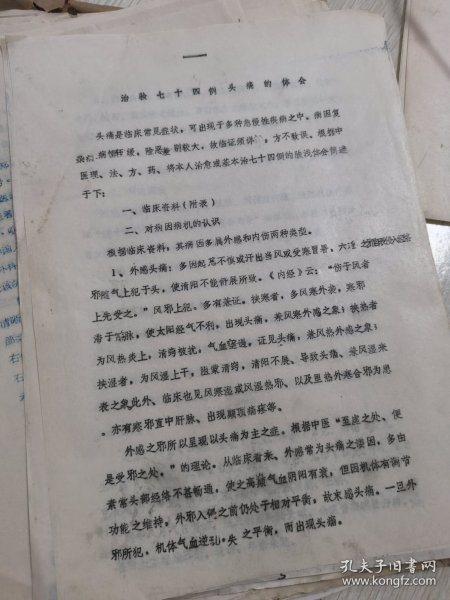 治验七十四例头痛的体会
头痛是临床常见症状，可出现于多种急慢性疾病之中。病因复
杂，病情狂缓，险恶差别较大，故临证须详，方不致误。根据中
医理、法、方、药、将本人治愈或基本治七十四例的脸浅体会简述
于下：
一、临床咨料（附表）
二、对病因病机的认识
根据临床咨料，其病因多属外感和内伤两种类型。
1、外感头痛：多因起居不慎或汗出当风或受寒冒暑、六淫
邪随气上犯于头，使清阳不能舒展所致。《内经》云：“伤于风者
上先受之。”风邪上犯，多有兼证。挟寒者，多风寒外袭，寒邪
滞于络脉，使太阳经气不利，出现头痛，兼风寒外感之象；挟热者
为风热炎上，清窍被扰，气血窒逆，证见头痛，兼风热外感之象；
挟湿者，为风湿上干，湿蒙清窍，清阳不展、导致头痛、兼风湿来
表之象。此外、临床也见风寒湿或风湿热邪、以及里热外寒合邪为患
。亦有寒邪直中肝脉、出现颠顶痛疼等。
外感之邪所以呈现以头痛为主之症。根据中医“至虚之处、便
是受邪之处。”的理论。从临床看来、外感常为头痛之诱因，多由
素常头部经络不甚畅通，使之高颠气血阴阳有衰，但因机体有调节
功能之维持。外邪入侵之前仍处于相对平衡，故未感头痛。一旦外
邪所犯，机体气血逆乱，失 之平衡，而出现头痛。
孔夫子旧书网
www.kongfz.com